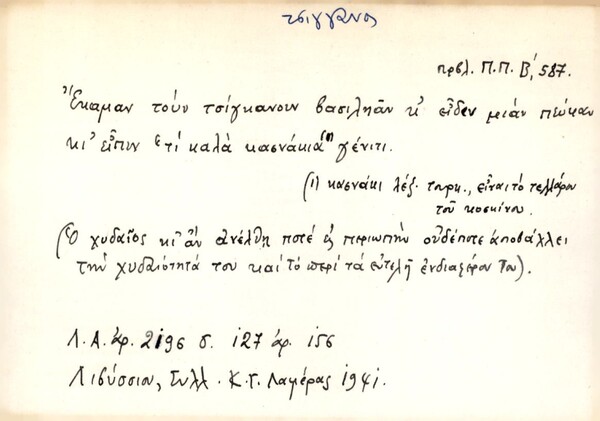 τσιγγᾶνος
πρβλ. Π.Π. Β', 587.
Ἔκαμαν τοὺν τσίγκανουν βασιληᾶν κ' εἶδεν μιὰν πεῦκαν
κι' εἶπιν ἑτί καλὰ κασνάκια⁽¹⁾ γένιτι.
(1) κασνάκι λέξ. τουρκ., εἶναι τὸ τελλάρον
τοῦ κοσκίνου.
(Ὁ χυδαῖος κι' ἂν ἀνέλθῃ ποτέ εἰς περιωπὴν οὐδέποτε ἀποβάλλει
τὴν χυδαιότητά του καὶ τὸ περί τὰ εὐτελῆ ἐνδιαφέρον του).
Λ.Α. ἀρ. 2196 σ. 127 ἀρ. 156
Λιβύσσιον, Συλλ. Κ.Γ. Λαμέρας 1941.